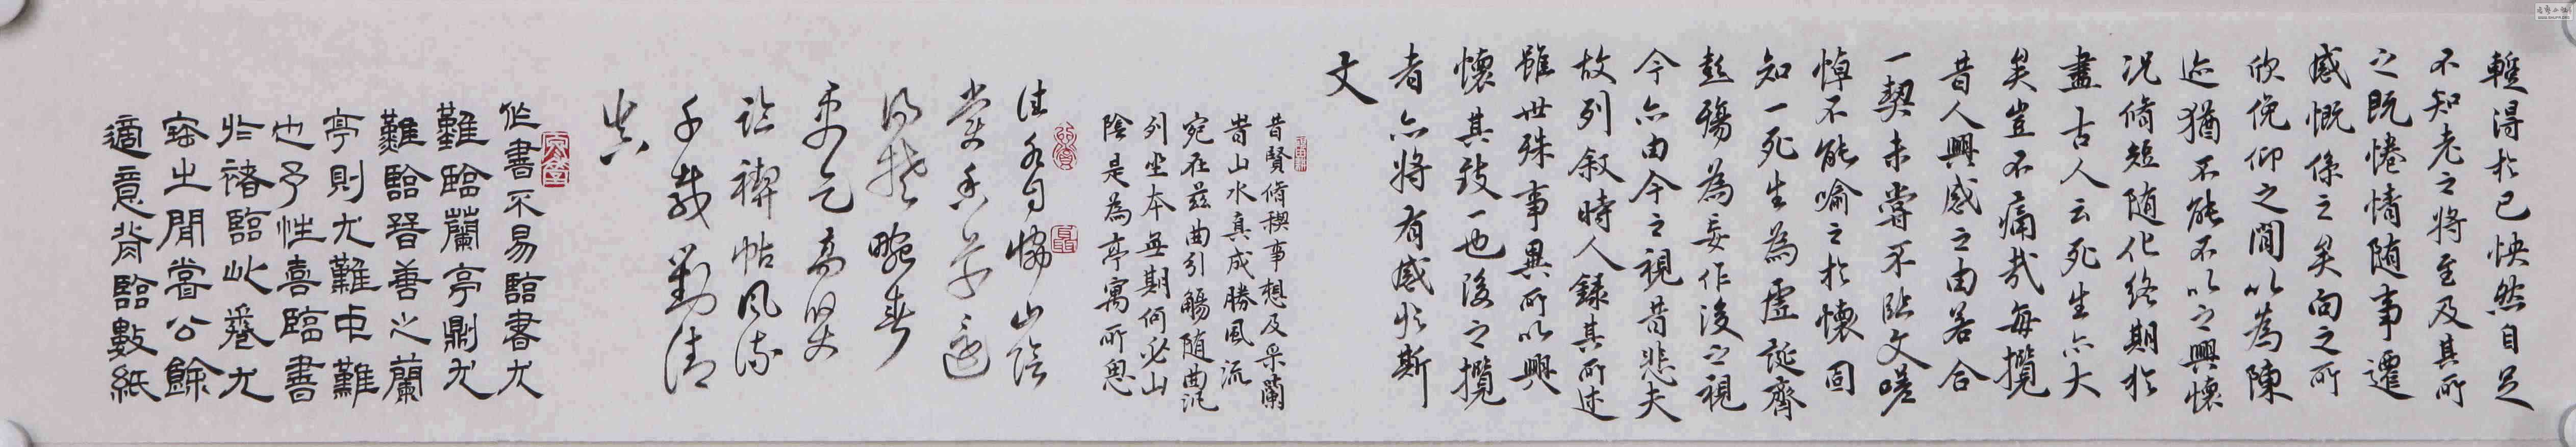 輕得於己怏然自足
不知老之將至及其所
之既惓情随事遷
感慨係之矣向之所
欣俛仰之閒以為陳
迹猶不能不以之興懷
況脩短隨化終期於
盡古人云死生亦大
矣豈不痛哉每攬
昔人興感之由若合
一契未嘗不臨文嗟
悼不能喻之於懷固
知一死生為虛誕齊
彭殤為妄作後之視
今亦由今之視昔悲夫
故列叙時人錄其所述
雖世殊事異所以興
懷其致一也後之攬
者亦將有感於斯
文
昔賢脩稧事想及采蘭
旹山水真成勝風流
宛在茲曲引觴随曲沉
列坐本無期何必山
陰是為亭寓所思
禊帖風流
千載對清
作書不易臨書尤
難臨蘭亭鼎尤
難臨晉善之蘭
亭則尤難中難
也予性喜臨書
於褚臨此卷尤
密之閒嘗公餘
適意背臨數紙